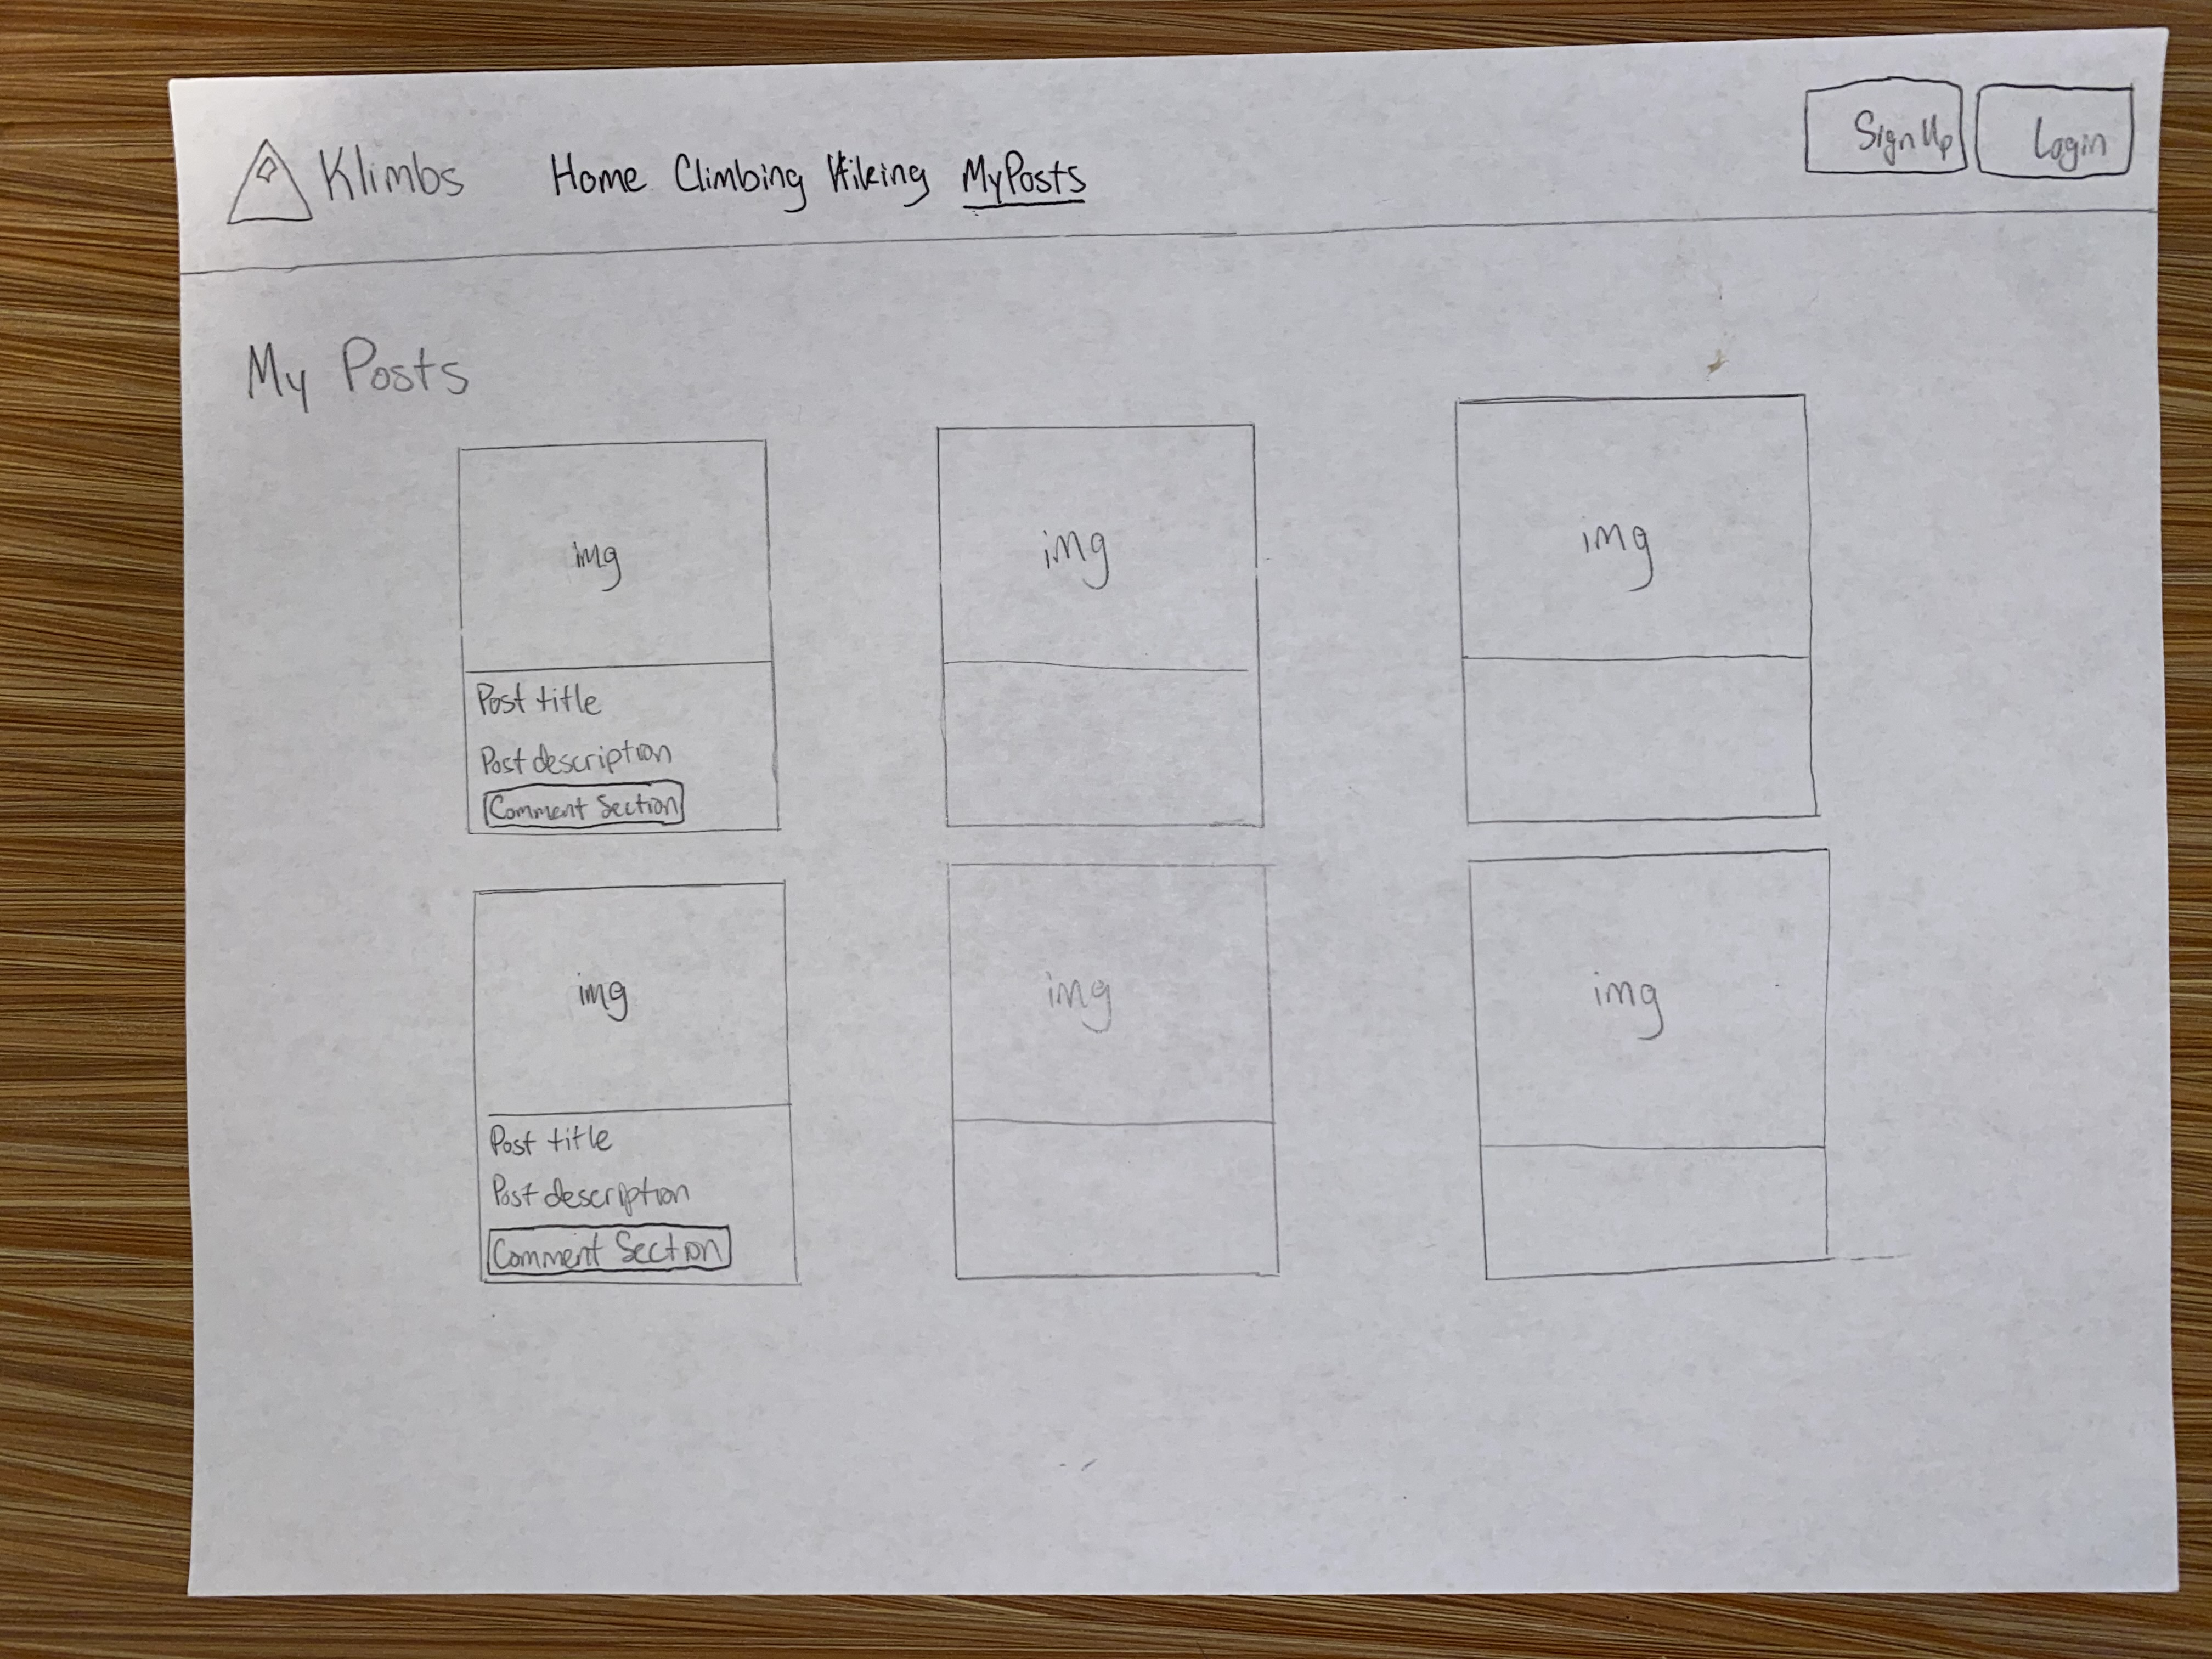 Klimbs Home Climbing Hiking My Posts Sign Up Login
My Posts
img img img
Post title
Post description
Comment Section
img img img
Post title
Post description
Comment Section